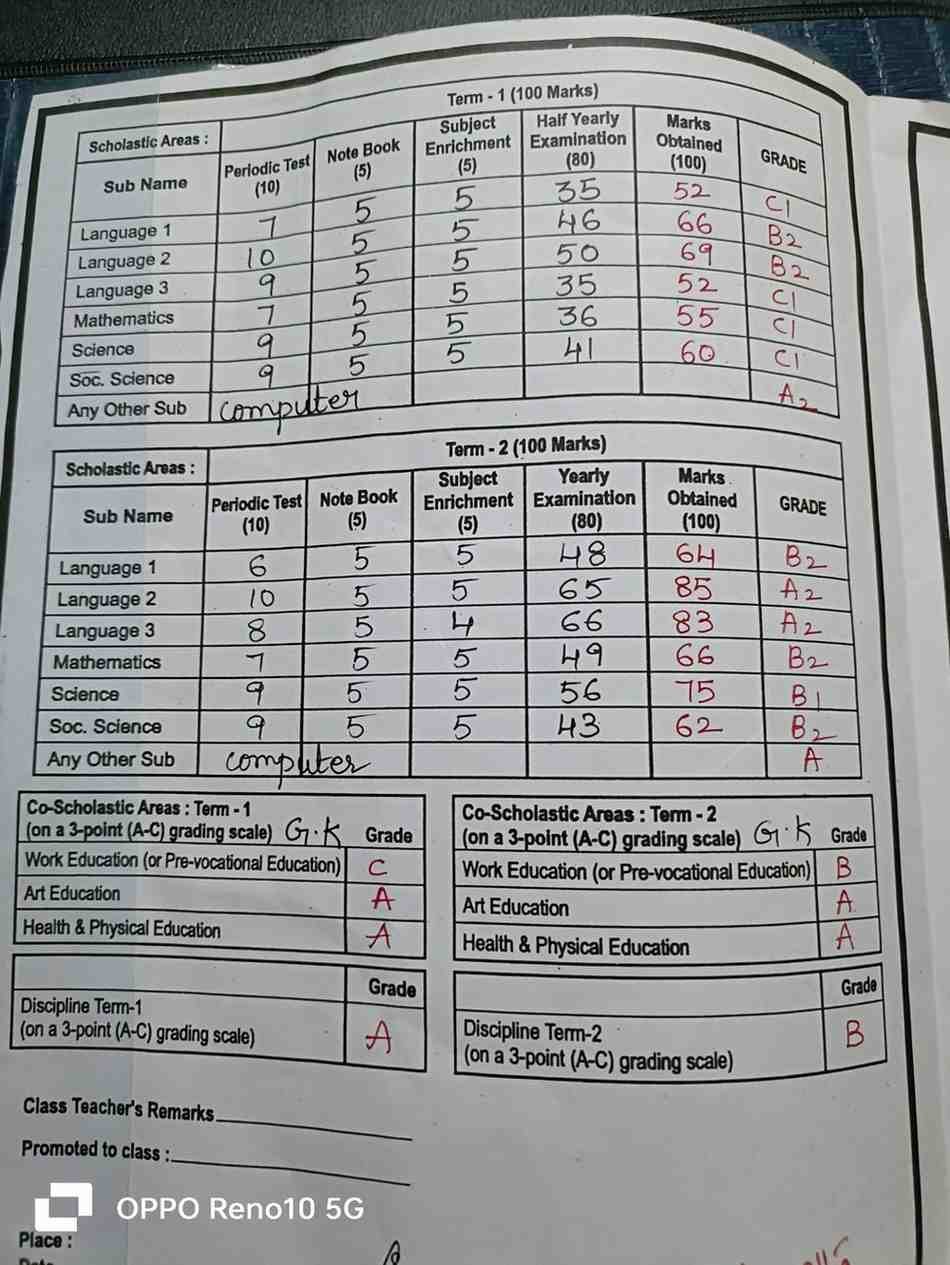 Term - 1 (100 Marks)
Scholastic Areas :
Sub Name Periodic Test (10) Note Book (5) Subject Enrichment (5) Half Yearly Examination (80) Marks Obtained (100) GRADE
Language 1 7 5 5 35 52 C1
Language 2 10 5 5 46 66 B2
Language 3 9 5 5 50 69 B2
Mathematics 7 5 5 35 52 C1
Science 9 5 5 36 55 C1
Soc. Science 9 5 5 41 60 C1
Any Other Sub computer A2
Term - 2 (100 Marks)
Scholastic Areas :
Sub Name Periodic Test (10) Note Book (5) Subject Enrichment (5) Yearly Examination (80) Marks Obtained (100) GRADE
Language 1 6 5 5 48 64 B2
Language 2 10 5 5 65 85 A2
Language 3 8 5 4 66 83 A2
Mathematics 7 5 5 49 66 B2
Science 9 5 5 56 75 B1
Soc. Science 9 5 5 43 62 B2
Any Other Sub computer A
Co-Scholastic Areas : Term - 1
(on a 3-point (A-C) grading scale) G.K Grade
Work Education (or Pre-vocational Education) C
Art Education A
Health & Physical Education A
Grade
Discipline Term-1
(on a 3-point (A-C) grading scale) A
Co-Scholastic Areas : Term - 2
(on a 3-point (A-C) grading scale) G.K Grade
Work Education (or Pre-vocational Education) B
Art Education A
Health & Physical Education A
Grade
Discipline Term-2
(on a 3-point (A-C) grading scale) B
Class Teacher's Remarks
Promoted to class :
OPPO Reno10 5G
Place :